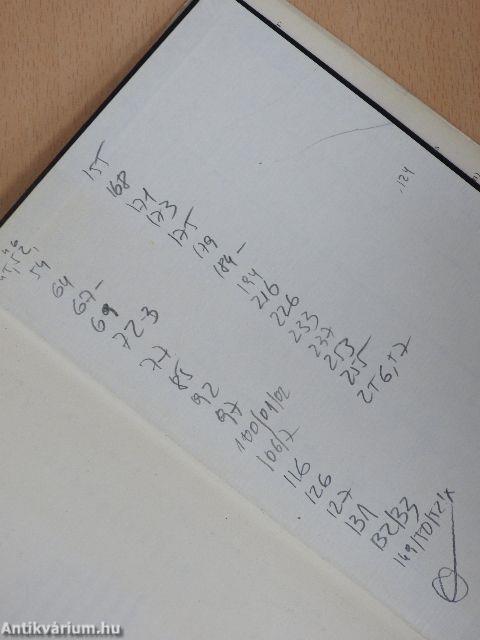 46
45, 52,
54
64
67-
69
72-3
77
85
92
97
100/01/02
106/7
116
126
127
131
132/33
149/50/52/x
155
168
171
173
175
179
184-
194
216
226
233
237
253
255
256, 57
124
Antikvárium.hu